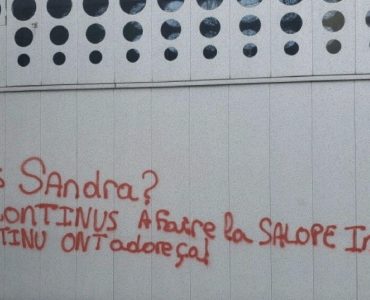 SAndra?
CONTINUS A faire la SALOPE
ONT adore ça!